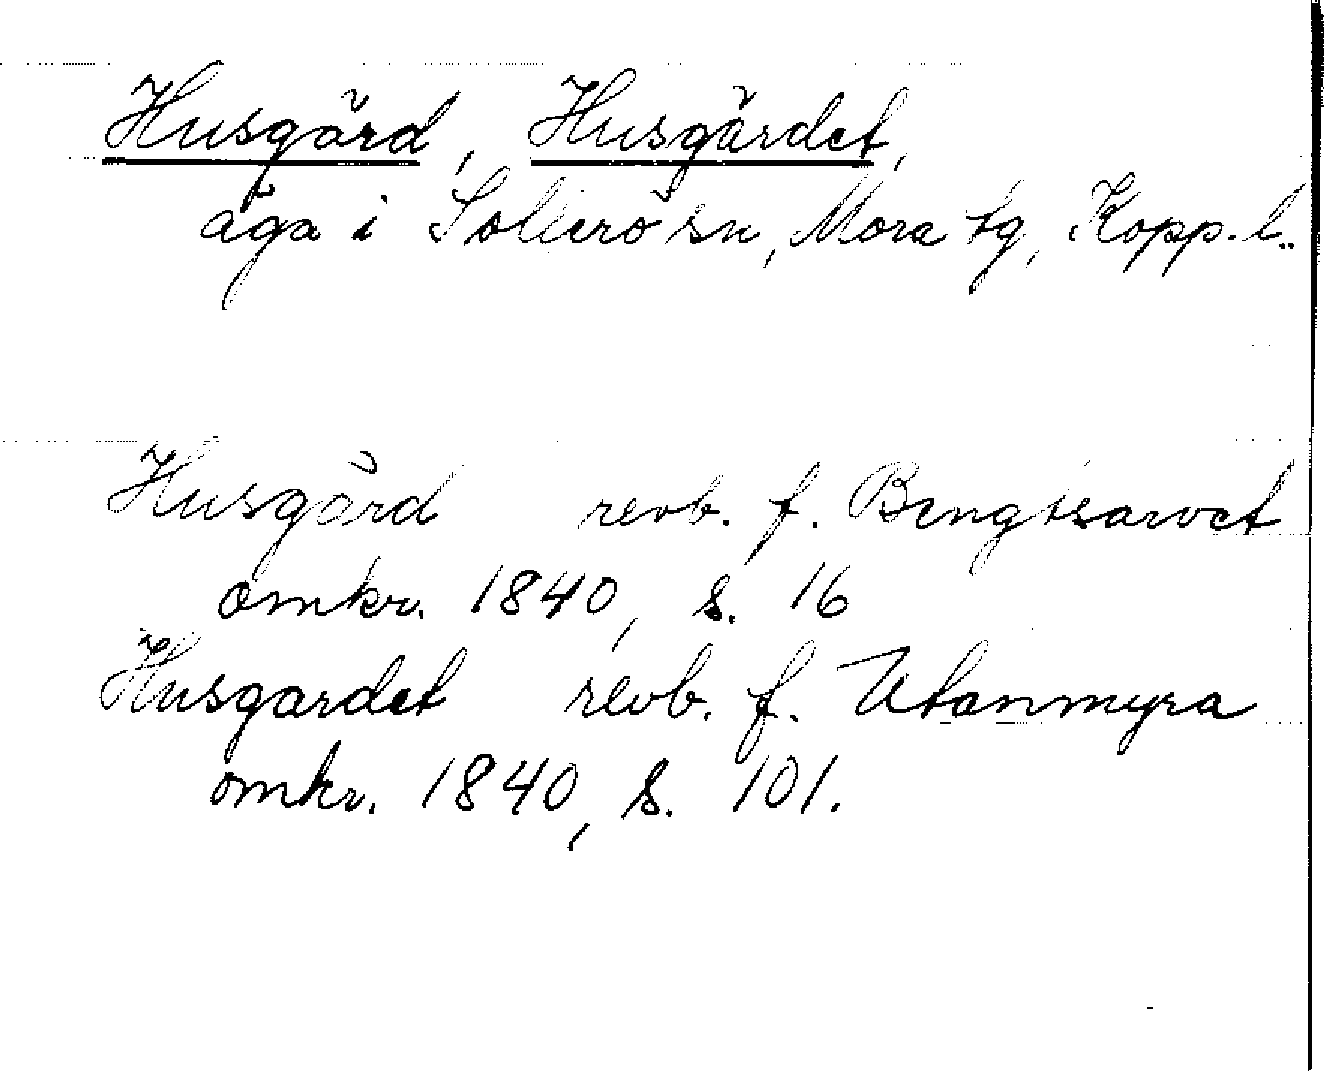 Husgärd, Husgärdet,
äga i Sollerö sn, Mora tg, Kopp. l.
Husgärd revb. f. Bengtsarvet
omkr. 1840, s. 16
Husgardet revb. f. Utanmyra
omkr. 1840, s. 101.